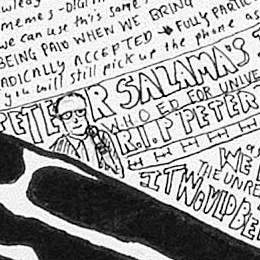 memes - DIGI
we can use this same
BEING PAID WHEN WE BRING
RADICALLY ACCEPTED → FULLY PARTIC
you will still pick up the phone as
PETER SALAMA'S
WHO ED FOR UNIVE
R.I.P PETER
as
WE
THE UNRE
IT WOULD BE